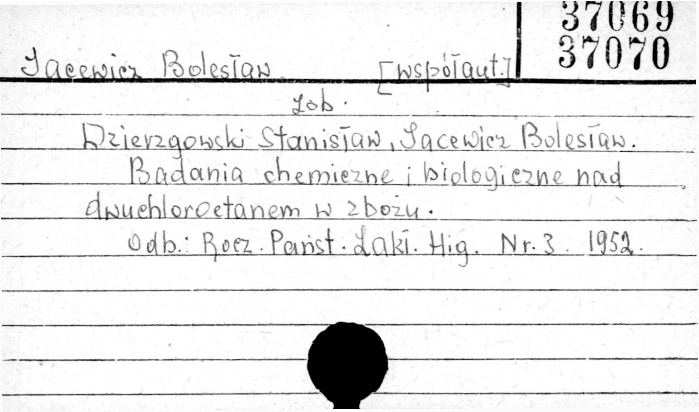 37069
37070
Jacewicz Bolesław [współaut.]
zob.
Dzierzgowski Stanisław, Jacewicz Bolesław.
Badania chemiczne i biologiczne nad
dwuchloroetanem w zbożu.
Odb.: Rocz. Państ. Zakł. Hig. Nr. 3. 1952.